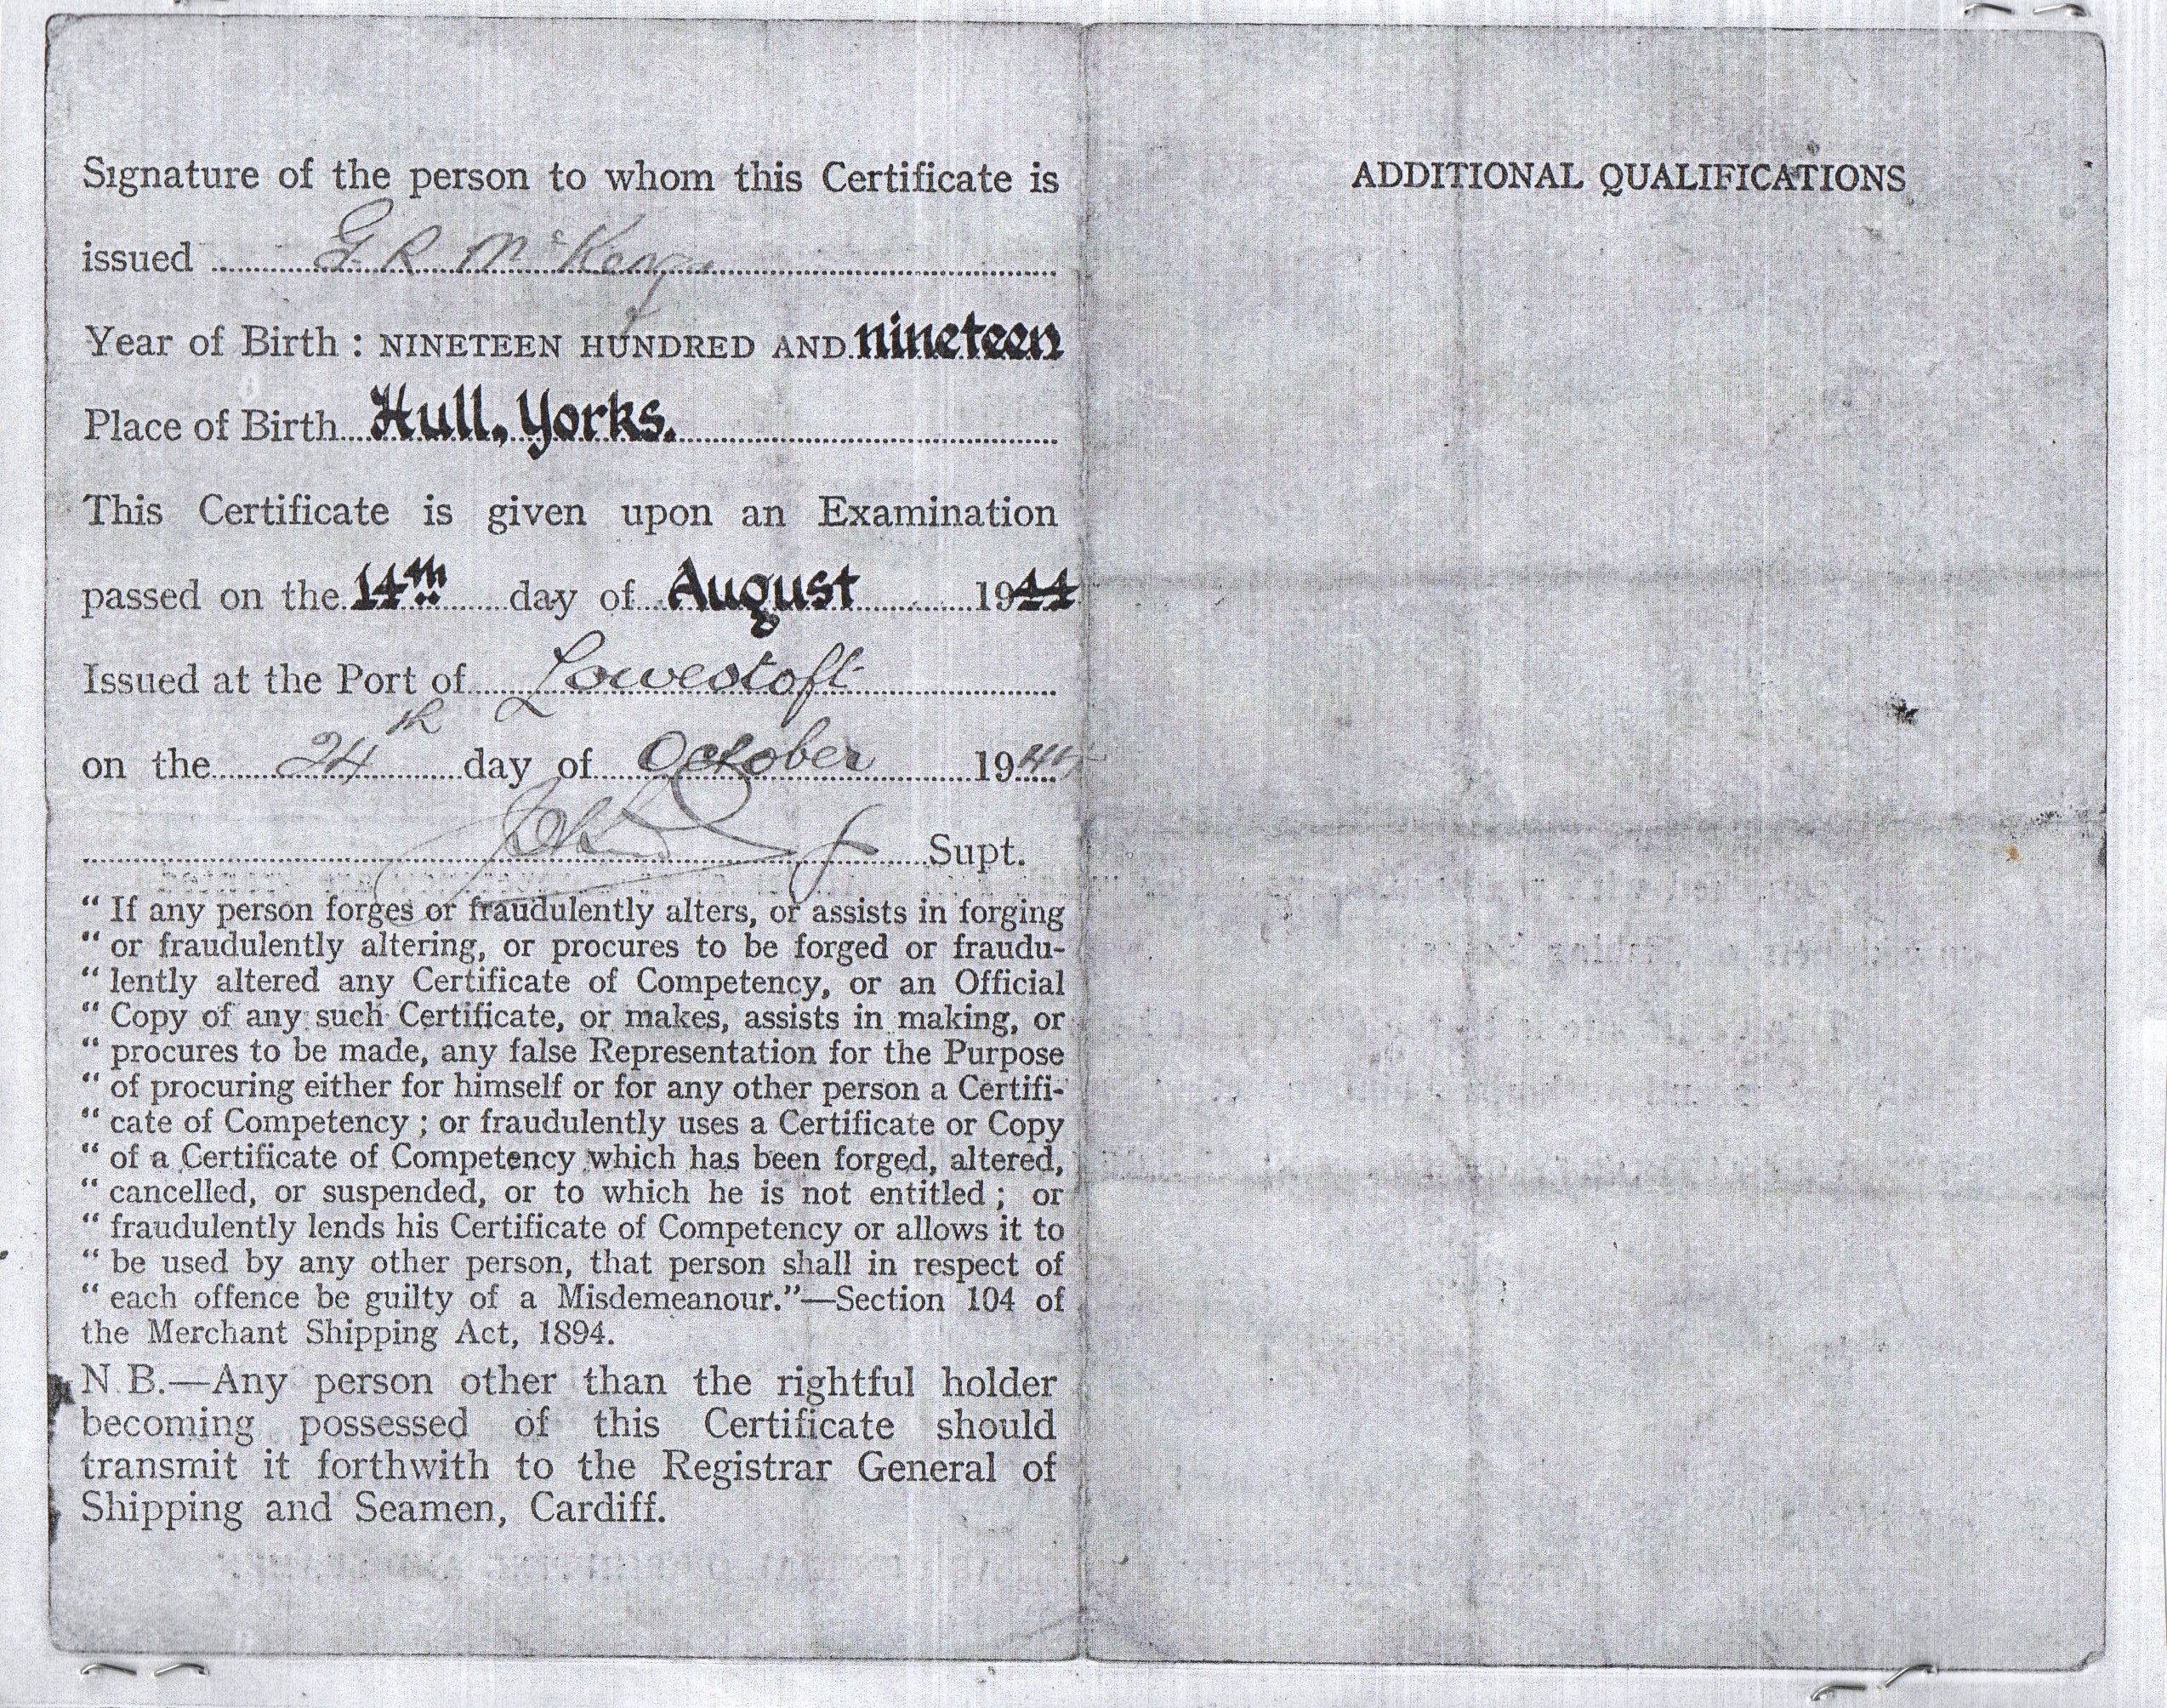 Signature of the person to whom this Certificate is
issued G. R. McKenzie
Year of Birth : NINETEEN HUNDRED AND nineteen
Place of Birth Hull, Yorks.
This Certificate is given upon an Examination
passed on the 14th day of August 1944
Issued at the Port of Lowestoft
on the 24th day of October 19
Supt.
“ If any person forges or fraudulently alters, or assists in forging
“ or fraudulently altering, or procures to be forged or fraudu-
“ lently altered any Certificate of Competency, or an Official
“ Copy of any such Certificate, or makes, assists in making, or
“ procures to be made, any false Representation for the Purpose
“ of procuring either for himself or for any other person a Certifi-
“ cate of Competency ; or fraudulently uses a Certificate or Copy
“ of a Certificate of Competency which has been forged, altered,
“ cancelled, or suspended, or to which he is not entitled ; or
“ fraudulently lends his Certificate of Competency or allows it to
“ be used by any other person, that person shall in respect of
“ each offence be guilty of a Misdemeanour.”—Section 104 of
the Merchant Shipping Act, 1894.
N.B.—Any person other than the rightful holder
becoming possessed of this Certificate should
transmit it forthwith to the Registrar General of
Shipping and Seamen, Cardiff.
ADDITIONAL QUALIFICATIONS